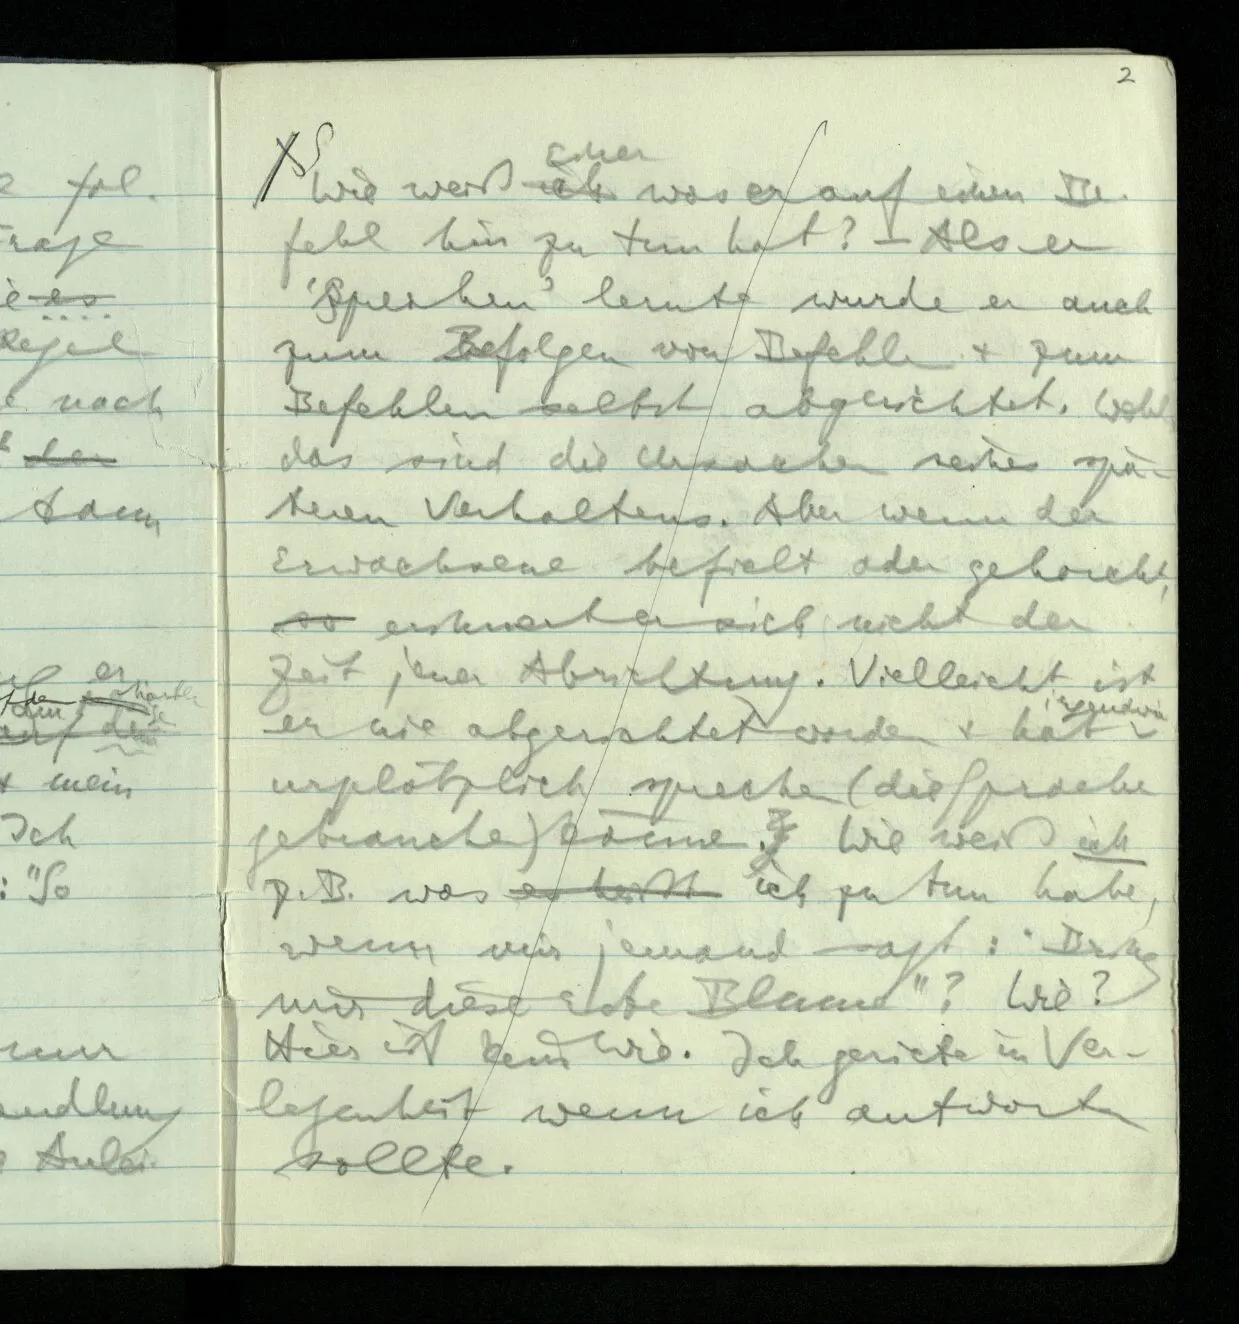 2
einer
Wie weiß ich was er auf einen Be-
fehl hin zu tun hat? – Als er
'Sprechen' lernte wurde er auch
zum Befolgen von Befehlen + zum
Befehlen selbst abgerichtet. Wohl
das sind die Ursachen seines spä-
teren Verhaltens. Aber wenn der
Erwachsene befielt oder gehorcht,
so erinnert er sich nicht der
Zeit jener Abrichtung. Vielleicht ist
irgendwie
er nie abgerichtet worden + hat
urplötzlich sprechen (die Sprache
gebrauchen) können. Wie weiß ich
z.B. was es heißt ich zu tun habe,
wenn mir jemand sagt: "Bring
mir diese rote Blume"? Wie?
Hier ist kein Wie. Ich geriete in Ver-
legenheit wenn ich antworten
sollte.
fol.
rage
es
Regel
nach
der
dann
er
mein
Ich
: "So
andlung
Anlei-